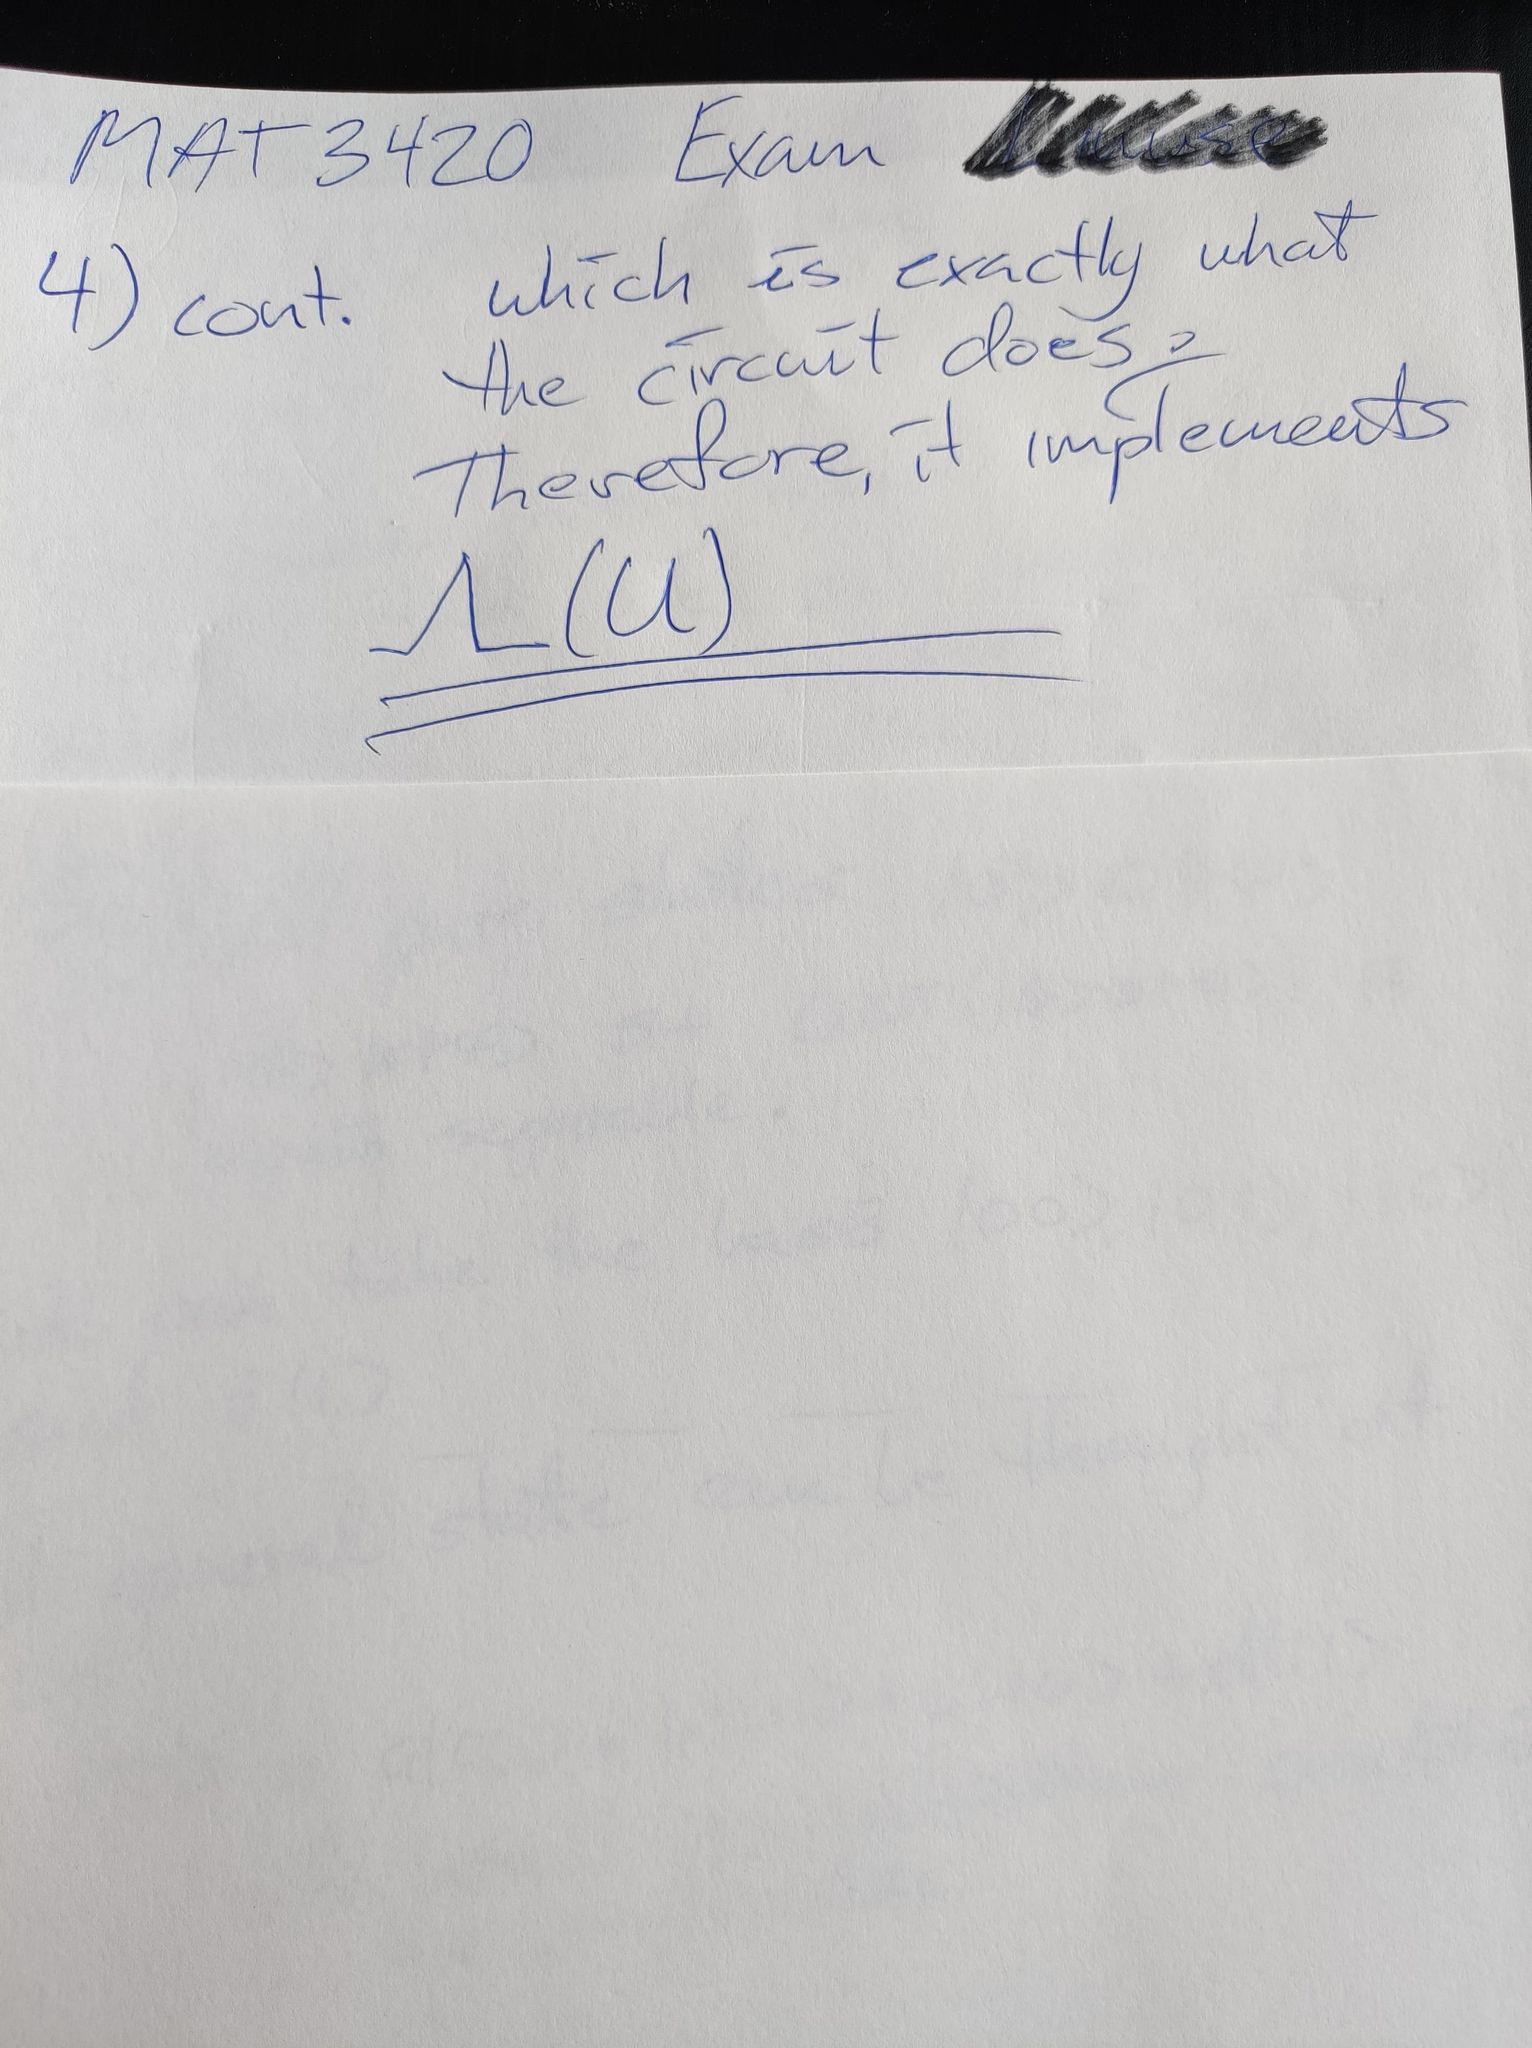 MAT3420 Exam
4) cont. which is exactly what
the circuit does.
Therefore, it implements
Λ(U)